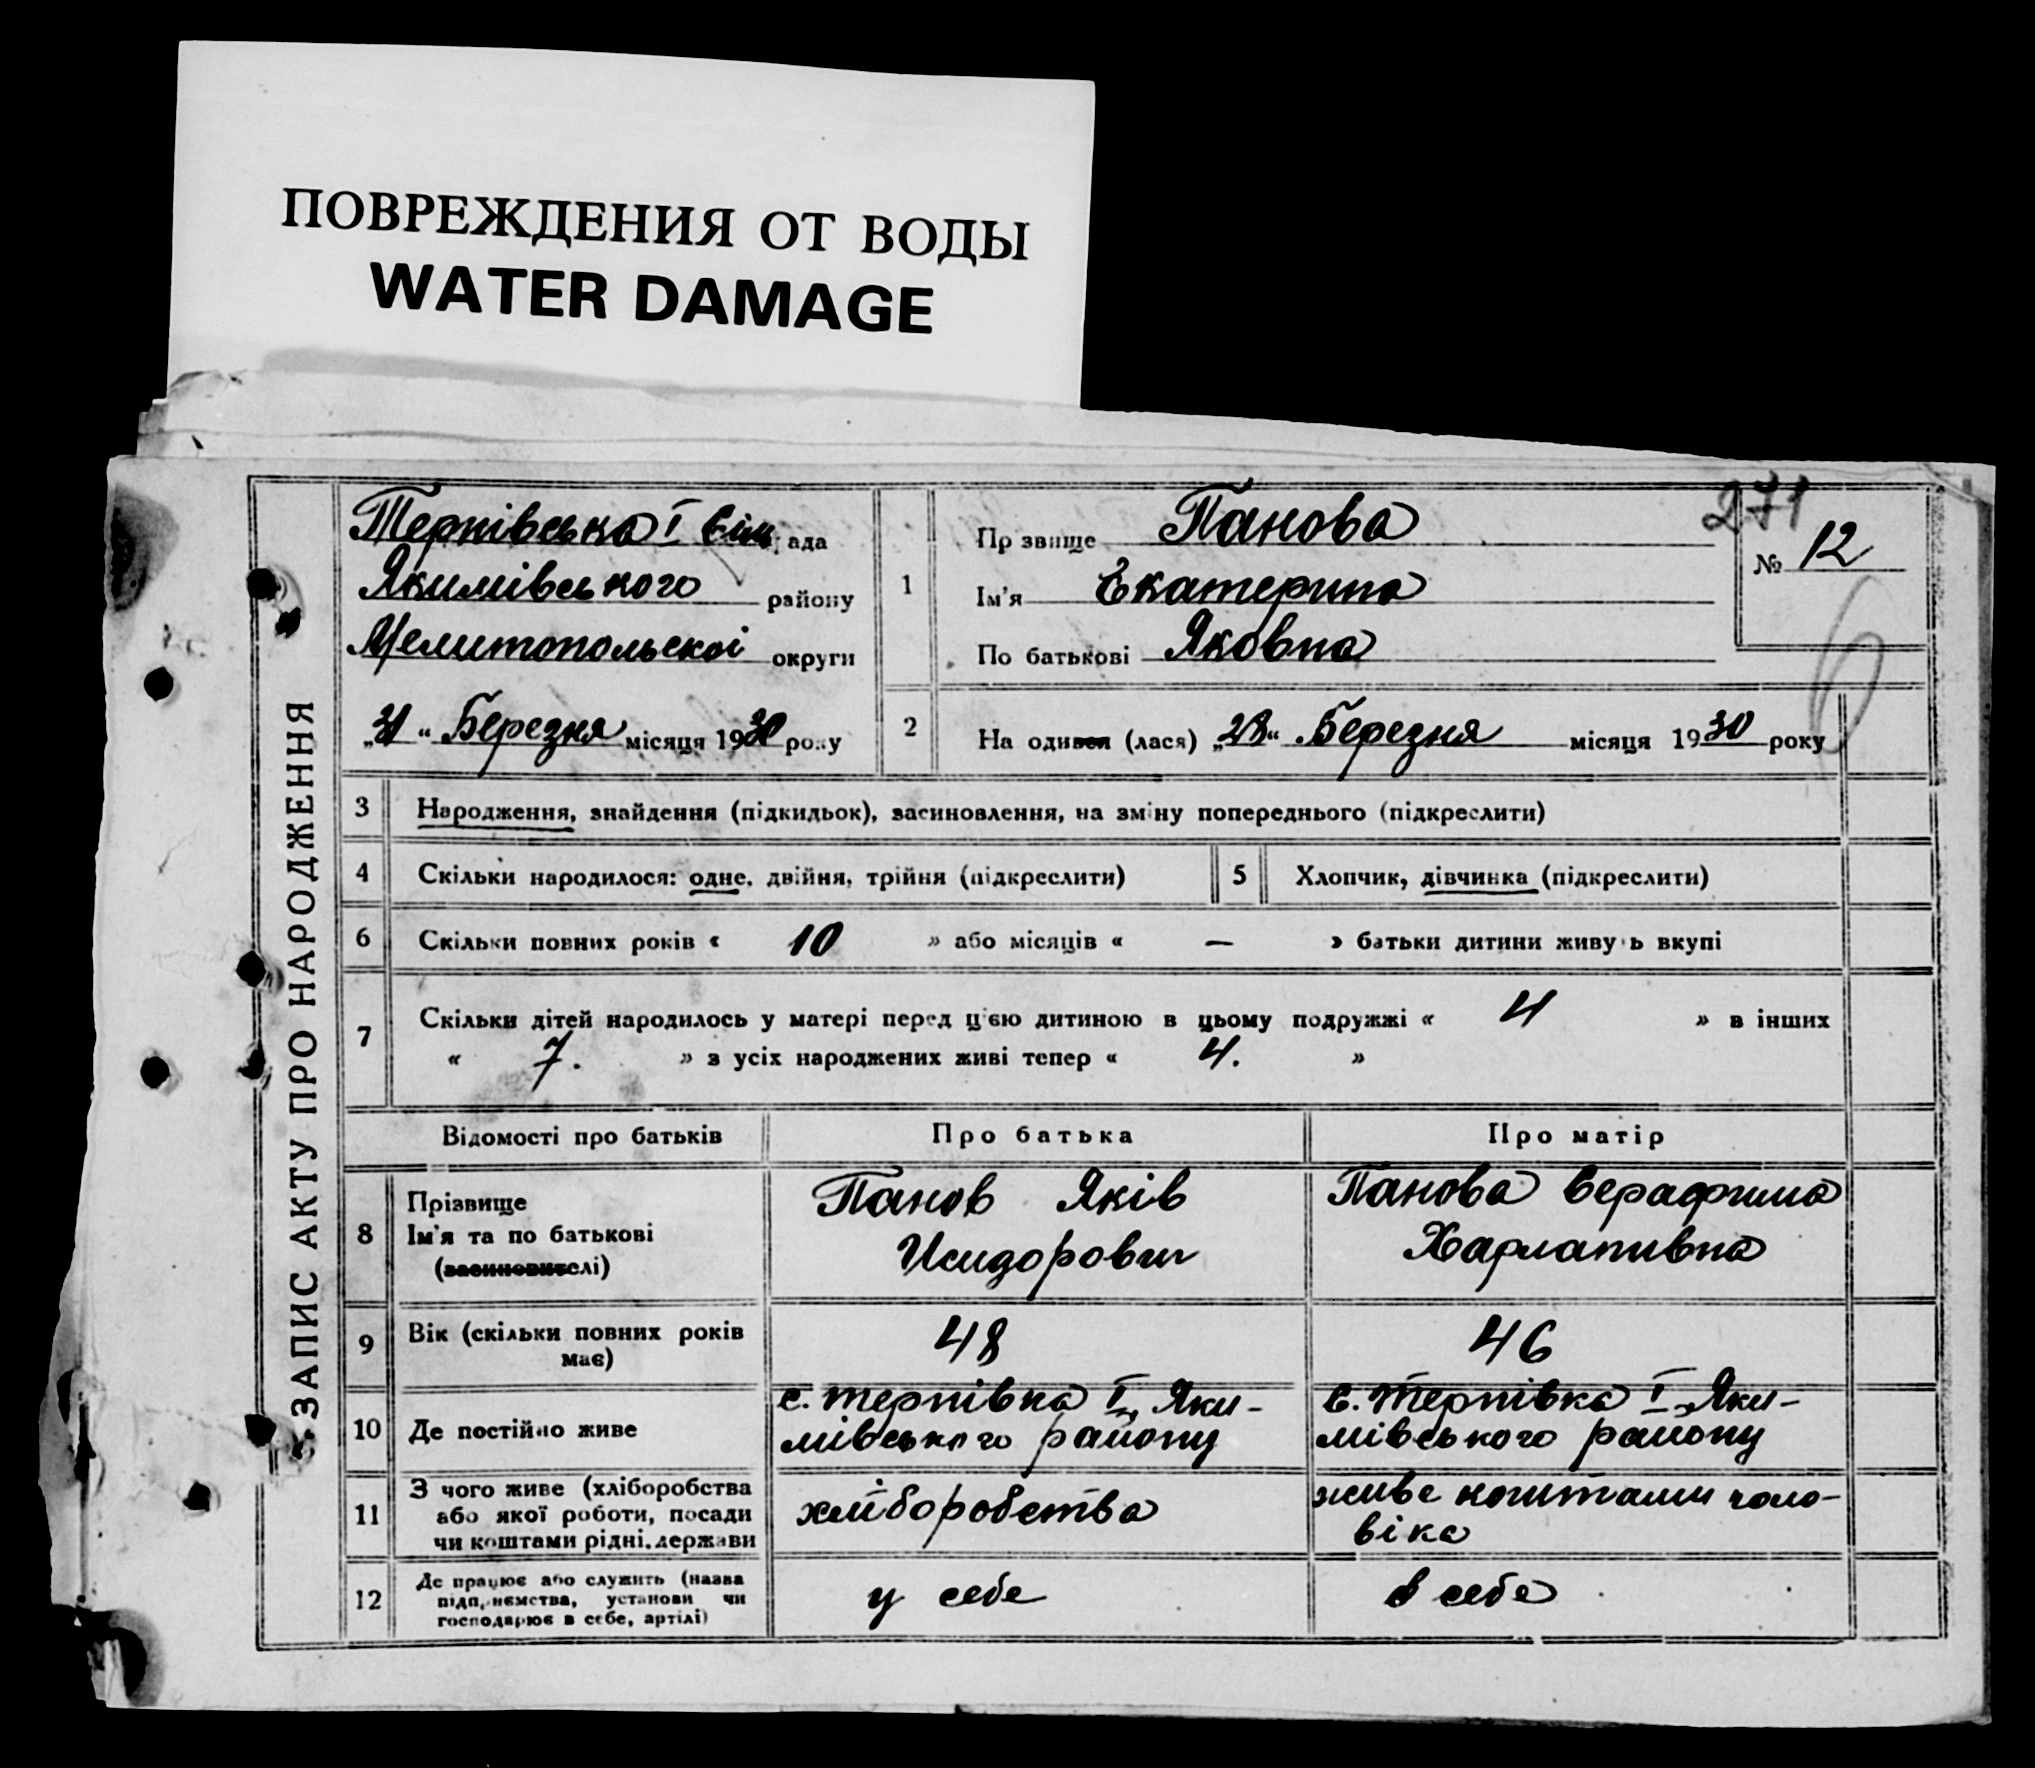 ПОВРЕЖДЕНИЯ ОТ ВОДЫ
WATER DAMAGE
271
ЗАПИС АКТУ ПРО НАРОДЖЕННЯ
Терпівська I Сіль рада
Якимівського району
Мелитопольскоі округи
„31“ Березня місяця 1930 року
1
Прізвище Панова
Ім'я Екатерина
По батькові Яковна
№ 12
2
На одився (лася) „28“ Березня місяця 1930 року
3 Народження, знайдення (підкидьок), засиновлення, на зміну попереднього (підкреслити)
4 Скільки народилося: одне, двійня, трійня (підкреслити)
5 Хлопчик, дівчинка (підкреслити)
6 Скільки повних років « 10 » або місяців « — » батьки дитини живуть вкупі
7 Скільки дітей народилось у матері перед ц'єю дитиною в цьому подружжі « 4 » в інших
« 7. » з усіх народжених живі тепер « 4. »
Відомості про батьків
Про батька
Про матір
8
Прізвище
Ім'я та по батькові
(засиновителі)
Панов Яків
Исидорович
Панова Серафима
Харлапивна
9
Вік (скільки повних років
має)
48
46
10 Де постійно живе
с. Терпівка I, Яки-
мівського району
с. Терпівка I, Яки-
мівського району
11
З чого живе (хліборобства
або якої роботи, посади
чи коштами рідні, держави
хліборобства
живе коштами чоло-
віка
12
Де працює або служить (назва
підприємства, установи чи
господарює в себе, артілі)
у себе
в себе